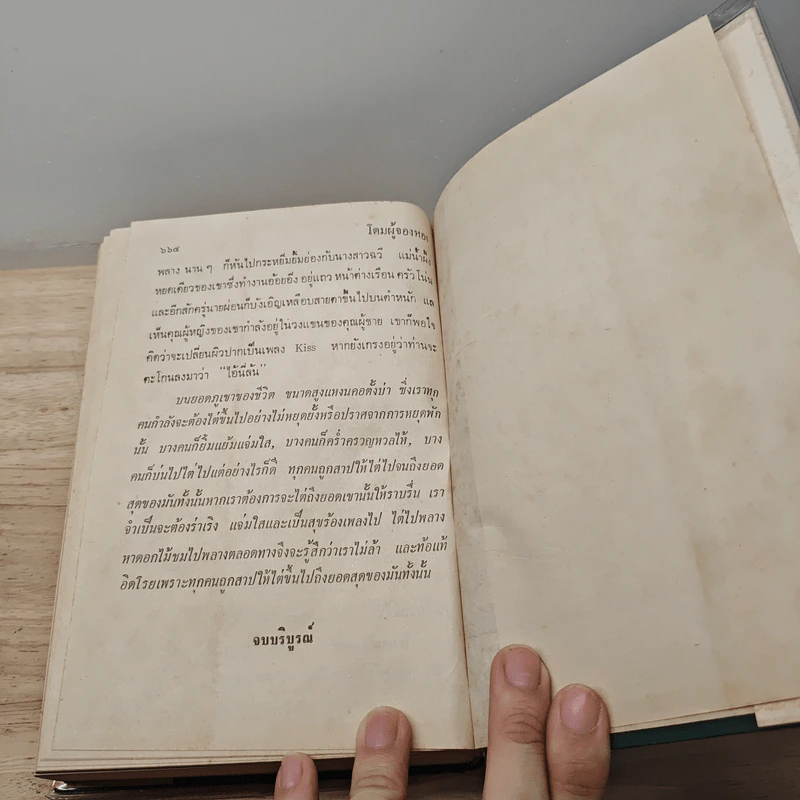 ๖๖๔
โดมผู้จองหอง
พลาง นาน ๆ ก็หันไปกระหยิ่มยิ้มย่องกับนางสาวฉวี แม่น้ำผึ้ง
หยดเดียวของเขาซึ่งทำงานอ้อยอิ่ง อยู่แถว หน้าต่างเรือน ครัว โน่น
และอีกสักครู่นายผ่อนก็บังเอิญเหลือบสายตาขึ้นไปบนตำหนัก แล
เห็นคุณผู้หญิงของเขากำลังอยู่ในวงแขนของคุณผู้ชาย เขาก็พอใจ
คิดว่าจะเปลี่ยนผิวปากเป็นเพลง Kiss หากยังเกรงอยู่ว่าท่านจะ
ตะโกนลงมาว่า "ไอ้นี่ลัน"
บนยอดภูเขาของชีวิต ขนาดสูงแหงนคอตั้งบ่า ซึ่งเราทุก
คนกำลังจะต้องไต่ขึ้นไปอย่างไม่หยุดยั้งหรือปราศจากการหยุดพัก
นั้น บางคนก็ยิ้มแย้มแจ่มใส, บางคนก็คร่ำครวญหวลไห้, บาง
คนก็บ่นไปไต่ไปแต่อย่างไรก็ดี ทุกคนถูกสาปให้ไต่ไปจนถึงยอด
สุดของมันทั้งนั้นหากเราต้องการจะไต่ถึงยอดเขานั้นให้ราบรื่น เรา
จำเป็นจะต้องร่าเริง แจ่มใสและเป็นสุขร้องเพลงไป ไต่ไปพลาง
หาดอกไม้ชมไปพลางตลอดทางจึงจะรู้สึกว่าเราไม่ล้า และท้อแท้
อิดโรยเพราะทุกคนถูกสาปให้ไต่ขึ้นไปถึงยอดสุดของมันทั้งนั้น
จบบริบูรณ์